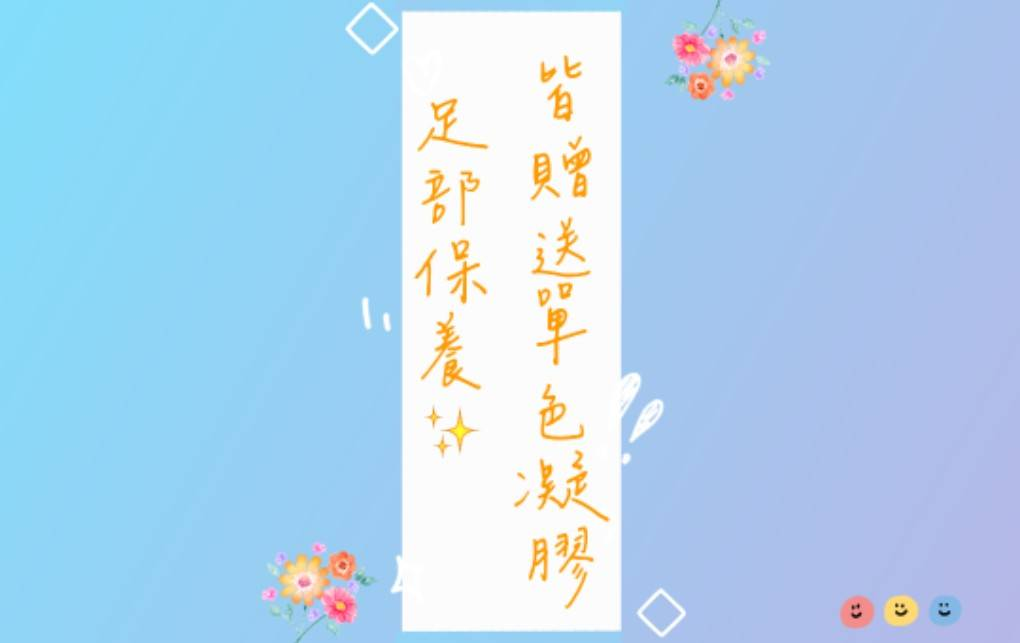 皆贈送單色凝膠
足部保養✨